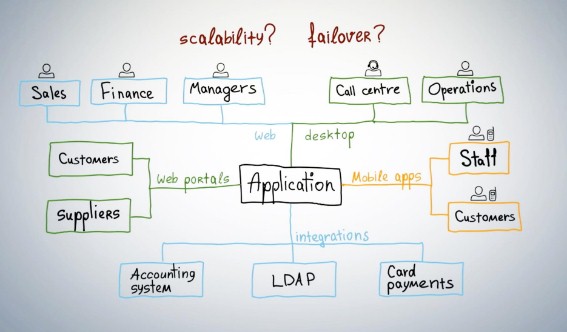 scalability? failover?
Sales
Finance
Managers
Call centre
Operations
web
desktop
Customers
Suppliers
Web portals
Application
Mobile apps
Staff
Customers
integrations
Accounting
system
LDAP
Card
payments